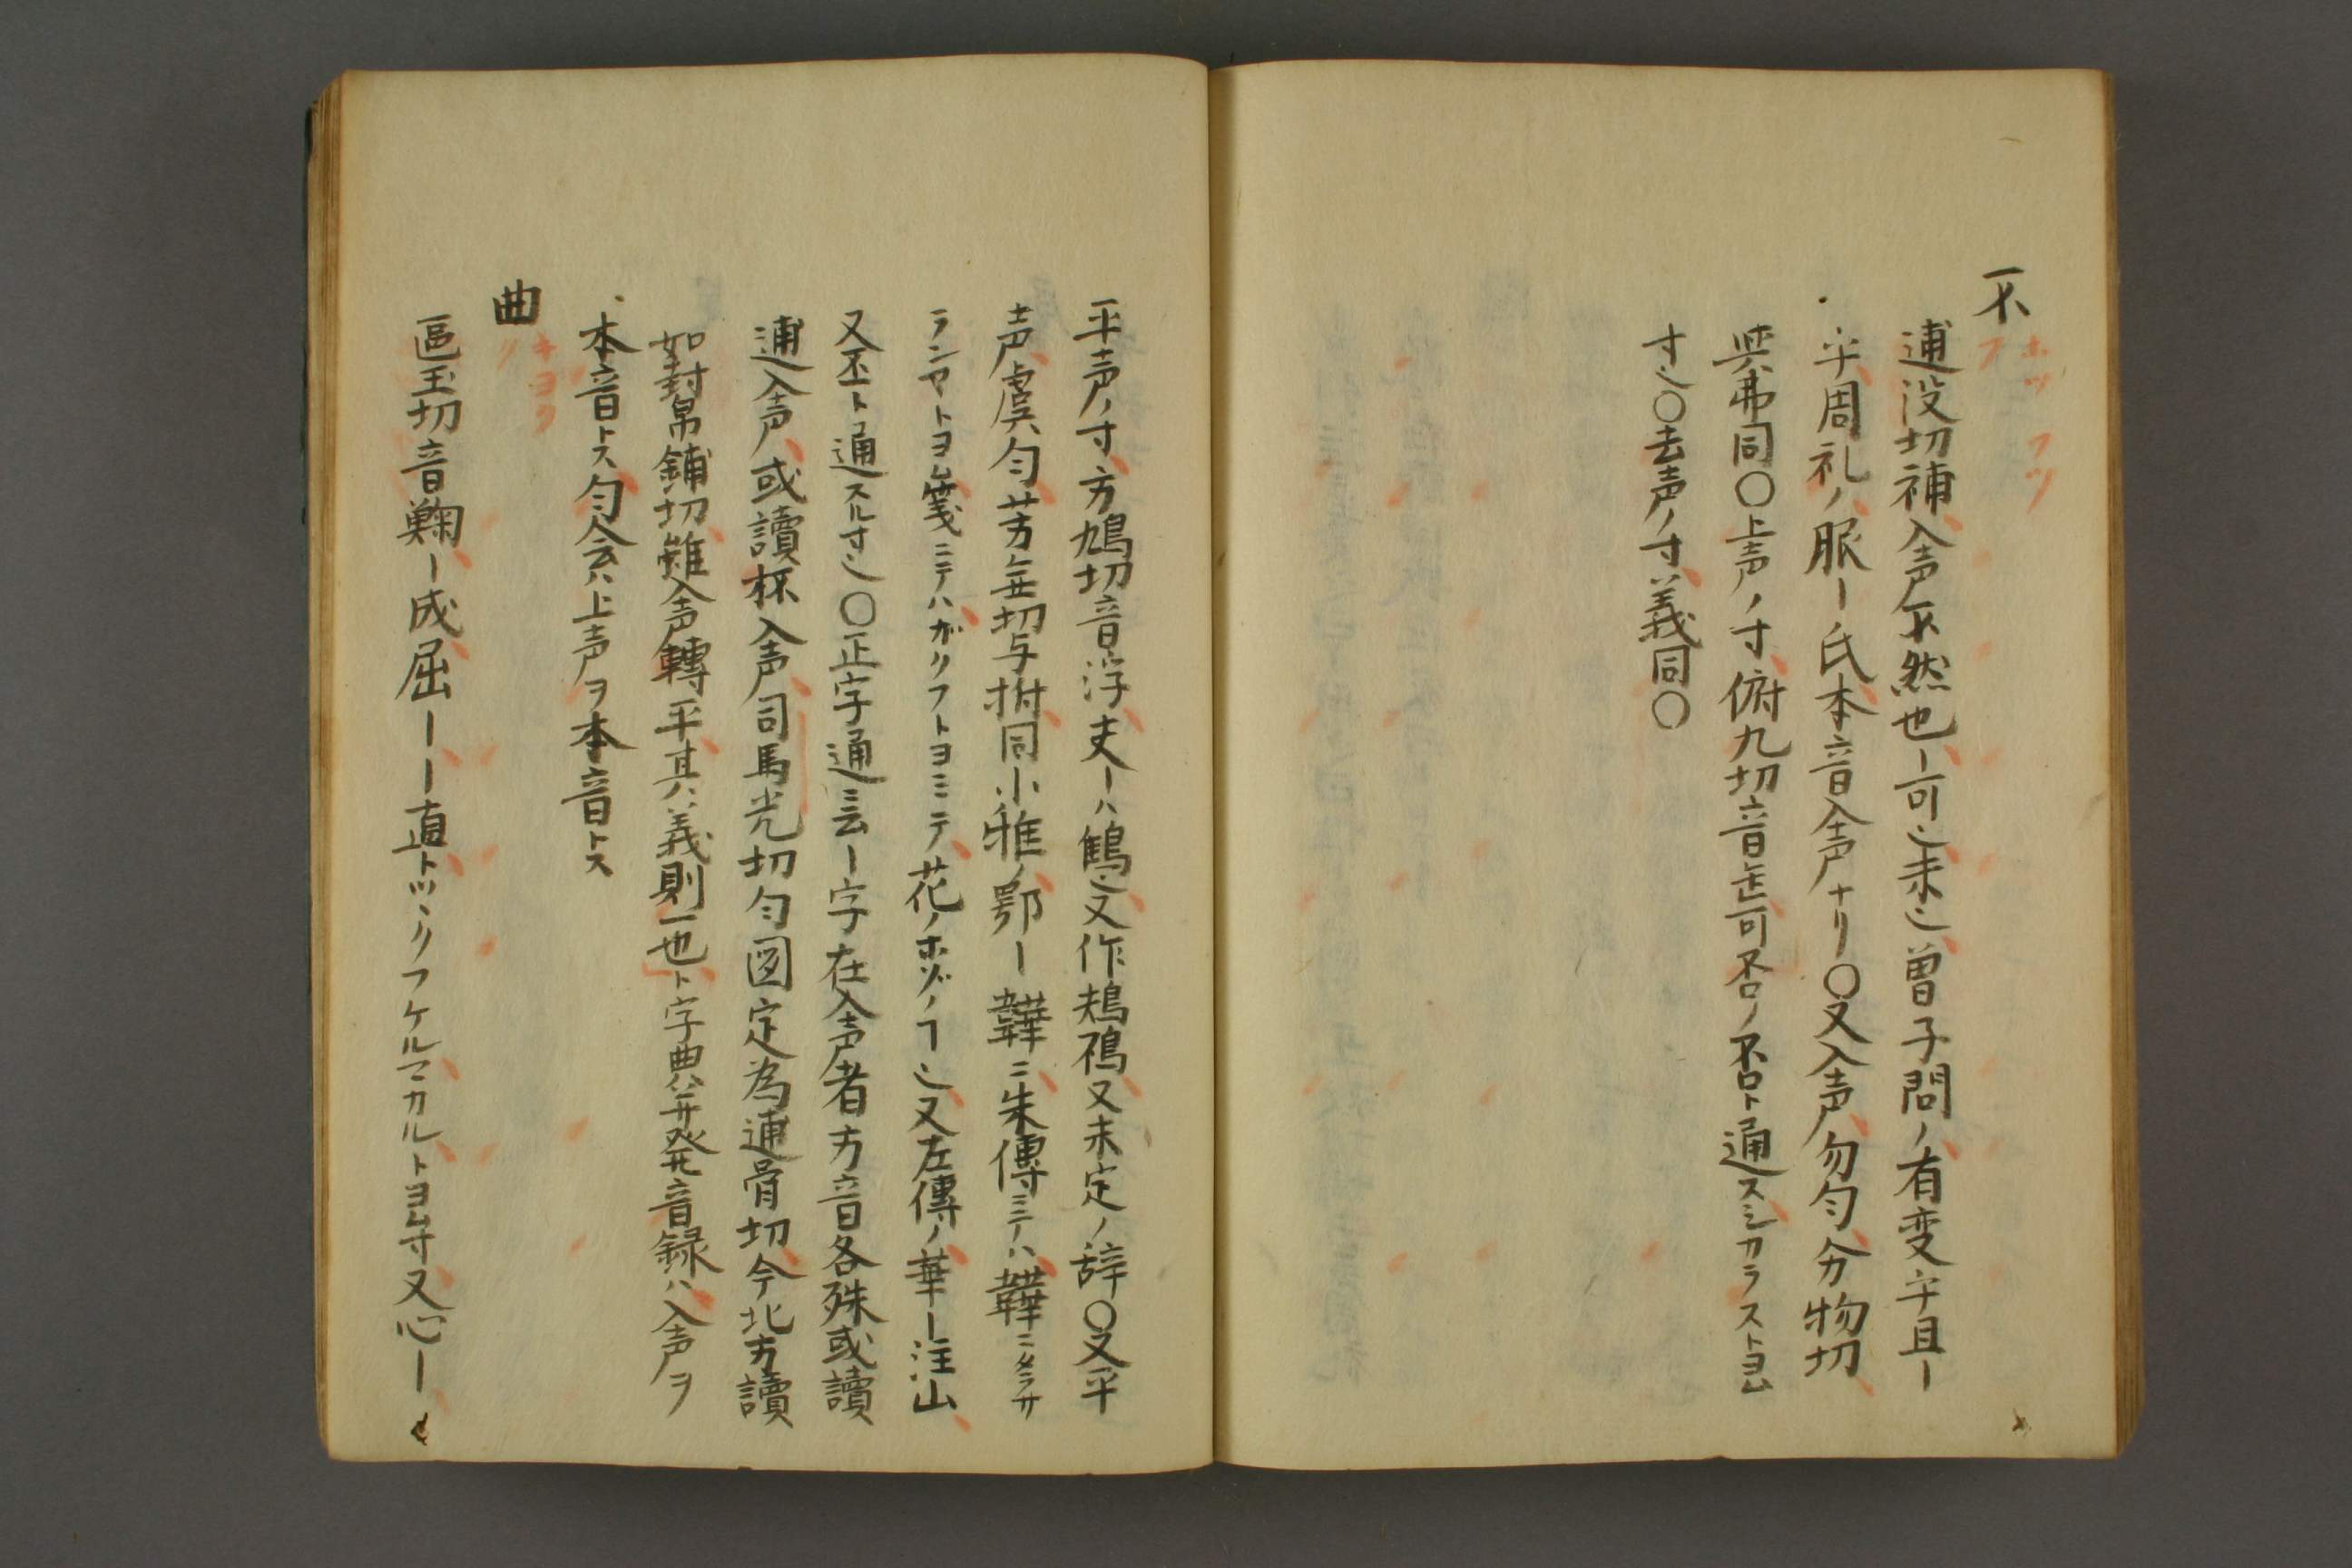 不 ホツ フツ フ
逋没切補入声不然也ー可也未也曽子問ノ有変乎且ー
乎周礼ノ服ー氏本音入声ナリ〇又入声勿匀分物切
與弗同〇上声ノ寸俯九切音缶可否ノ否ト通スシカラストヨム
寸也〇去声ノ寸義同〇
平声ノ寸方鳩切音浮夫ーハ鶴也又作鳺鴀又未定ノ辞〇又平
声虞匀芳無切与拊同小雅ノ鄂ー韡ニ朱傳ニテハ韡ニタラサ
ランヤトヨム箋ニテハガクフトヨミテ花ノホゾノヿ也又左傳ノ華ー注山
又丕ト通スル寸也〇正字通云ー字在入声者方音各殊或讀
逋入声或讀杯入声司馬光切匀図定為逋骨切今北方讀
如封帛鋪切雖入声轉平其義則一也ト字典并発音録ハ入声ヲ
本音トス匀会ハ上声ヲ本音トス
曲 キヨク ク
區玉切音鞠ー成屈ーー直トツヾクフケルマカルトヨム寸又心ー